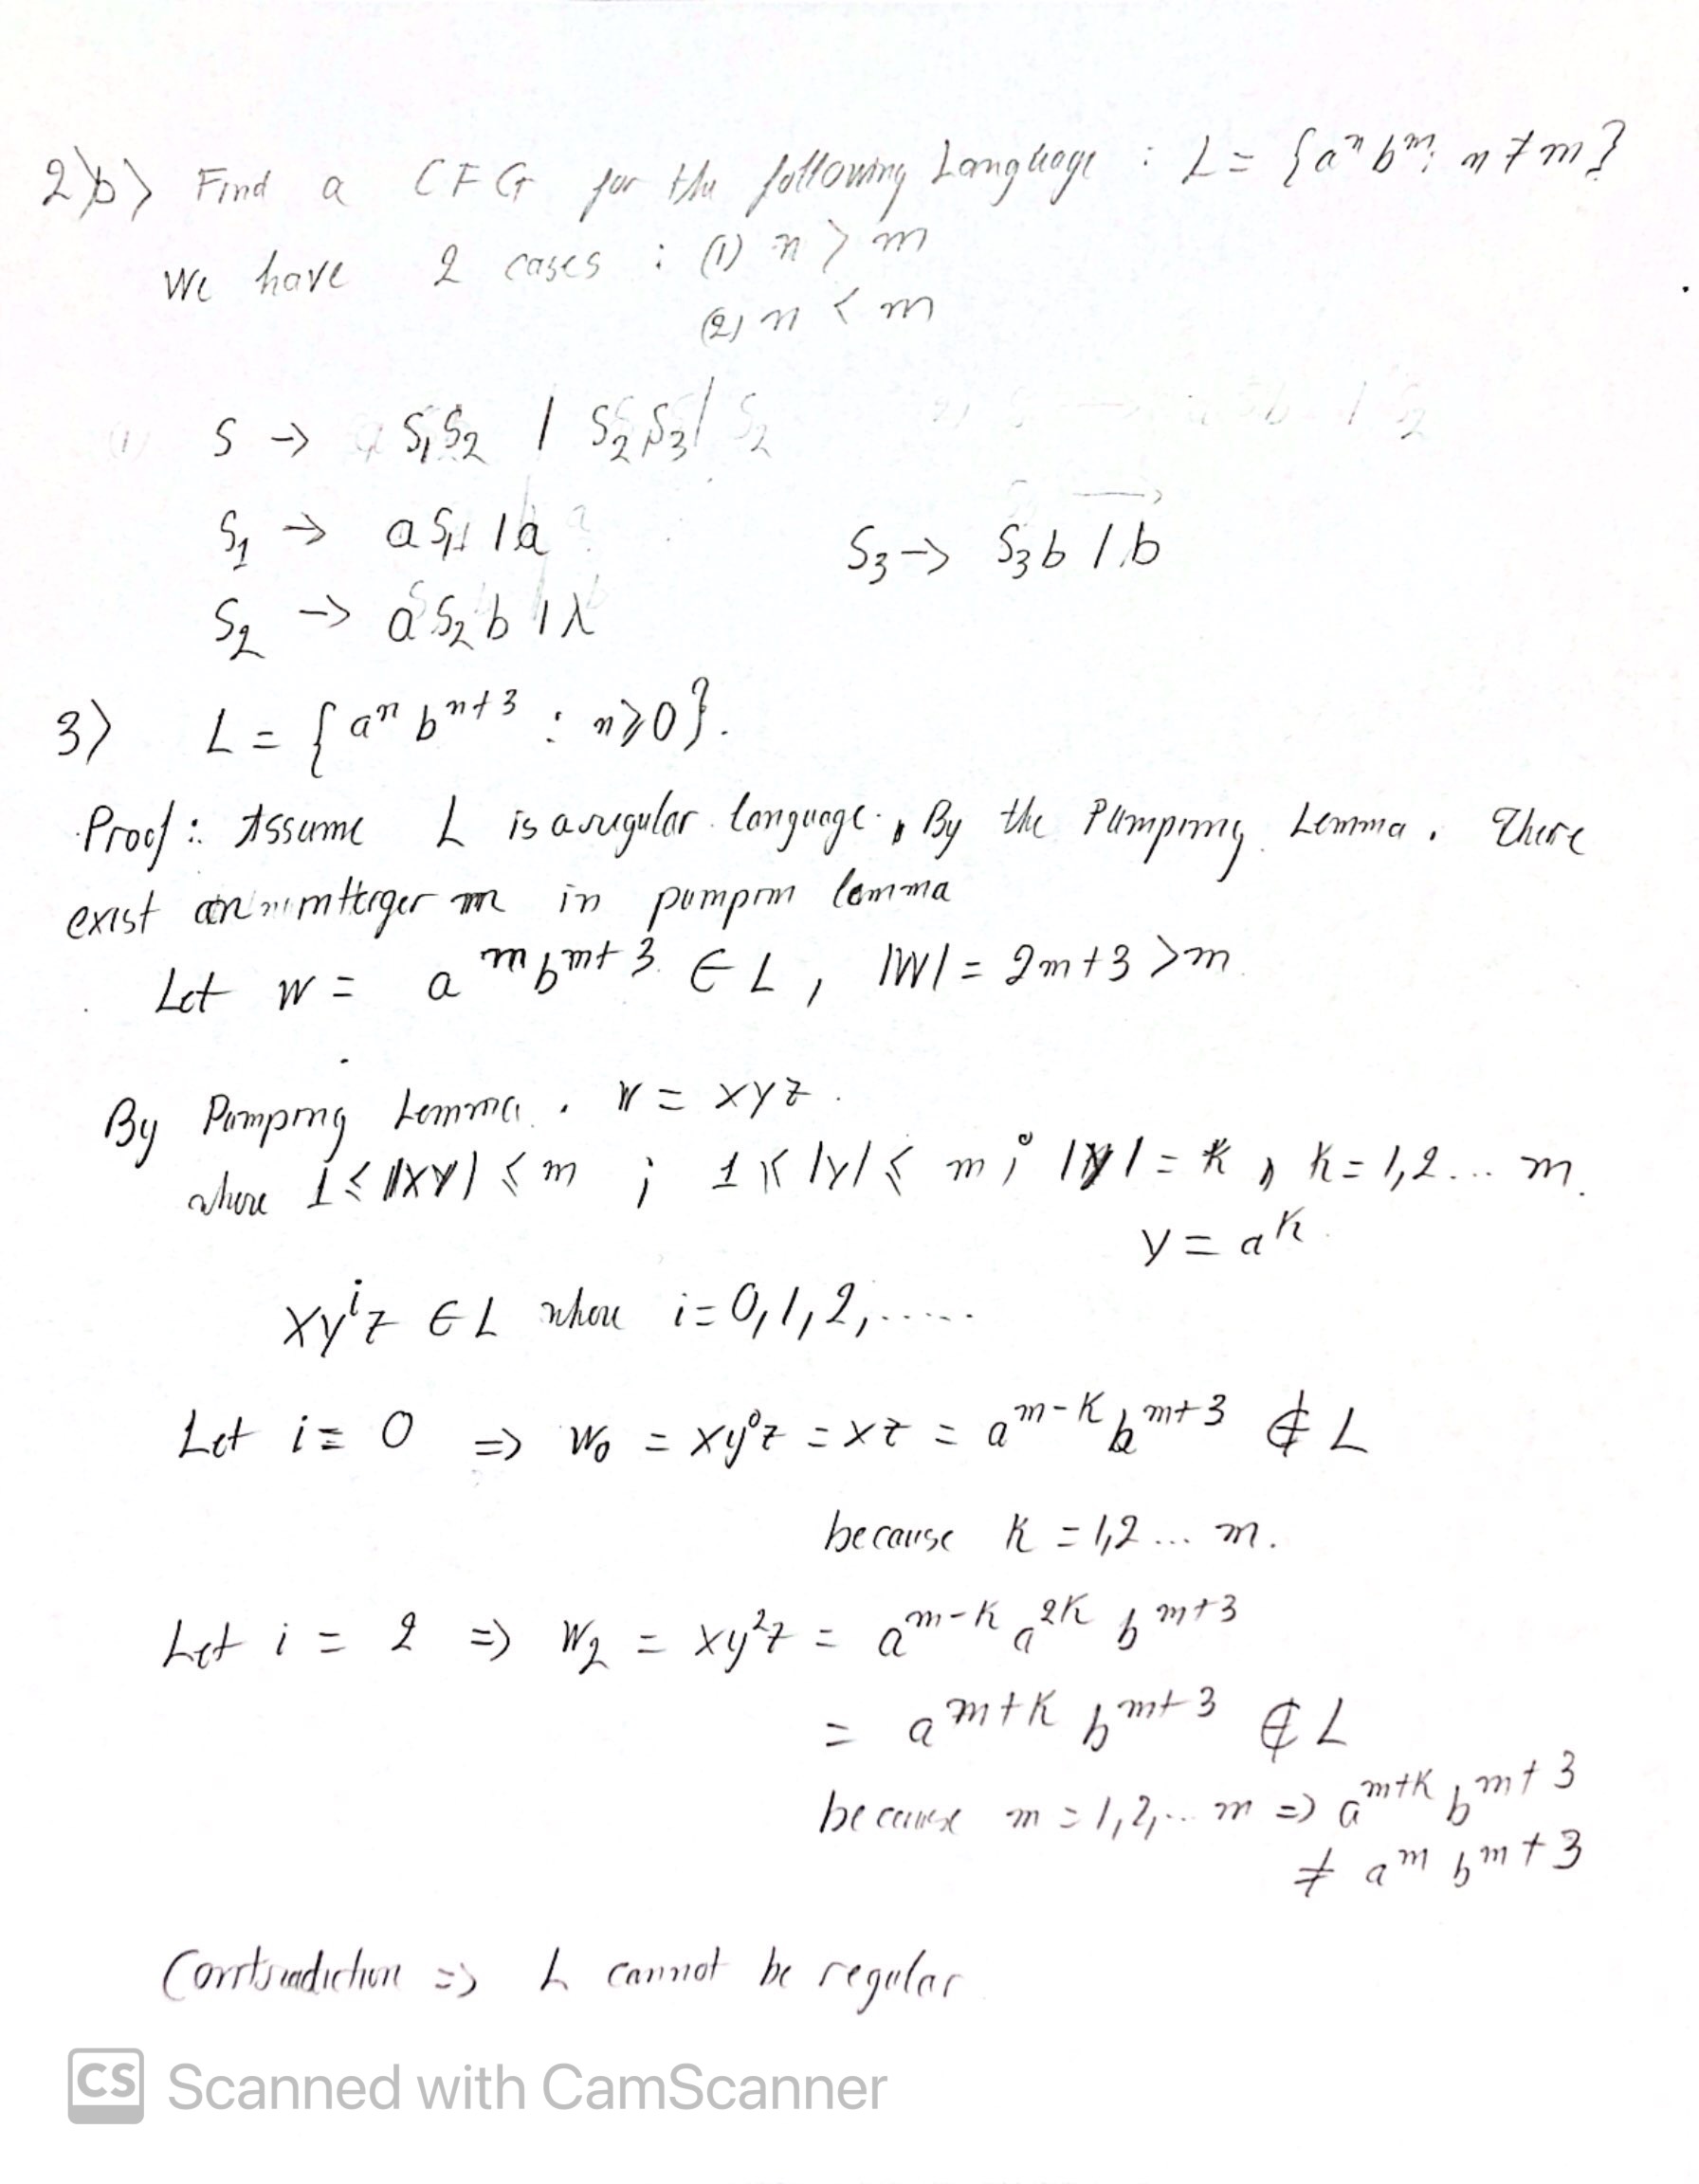 2) b) Find a CFG for the following Language : L = {aⁿ bᵐ; n ≠ m}
We have 2 cases : (1) n > m
(2) n < m
S → S₁S₂ | S₂S₃
S₁ → aS₁ | a
S₃ → S₃b | b
S₂ → aS₂b | λ
3) L = {aⁿ bⁿ⁺³ : n ≥ 0}.
Proof : Assume L is a regular language. By the Pumping Lemma. There
exist an m in pumpin lemma
Let w = aᵐ bᵐ⁺³ ∈ L, |W| = 2m+3 > m
By Pumping Lemma. w = xyz.
where 1 ≤ |XY| ≤ m ; 1 ≤ |Y| ≤ m ; |Y| = k, k = 1,2... m.
y = aᵏ.
xyⁱz ∈ L where i = 0,1,2,.....
Let i = 0 => w₀ = xy⁰z = xz = aᵐ⁻ᵏ bᵐ⁺³ ∉ L
because k = 1,2... m.
Let i = 2 => w₂ = xy²z = aᵐ⁻ᵏ a²ᵏ bᵐ⁺³
= aᵐ⁺ᵏ bᵐ⁺³ ∉ L
because m = 1,2,... m => aᵐ⁺ᵏ bᵐ⁺³
≠ aᵐ bᵐ⁺³
Contradiction => L cannot be regular
CS Scanned with CamScanner